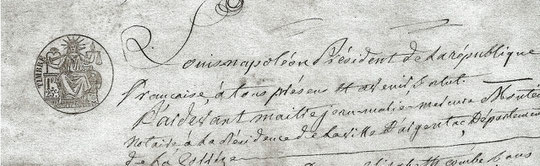 Louis napoléon Président de la république
française, à tous présens et avenir Salut.
Pardevant maitre jean-marie-mercure
notaire à la Résidence de la ville d'argentac, Département
de la Corrèze
TIMBRE